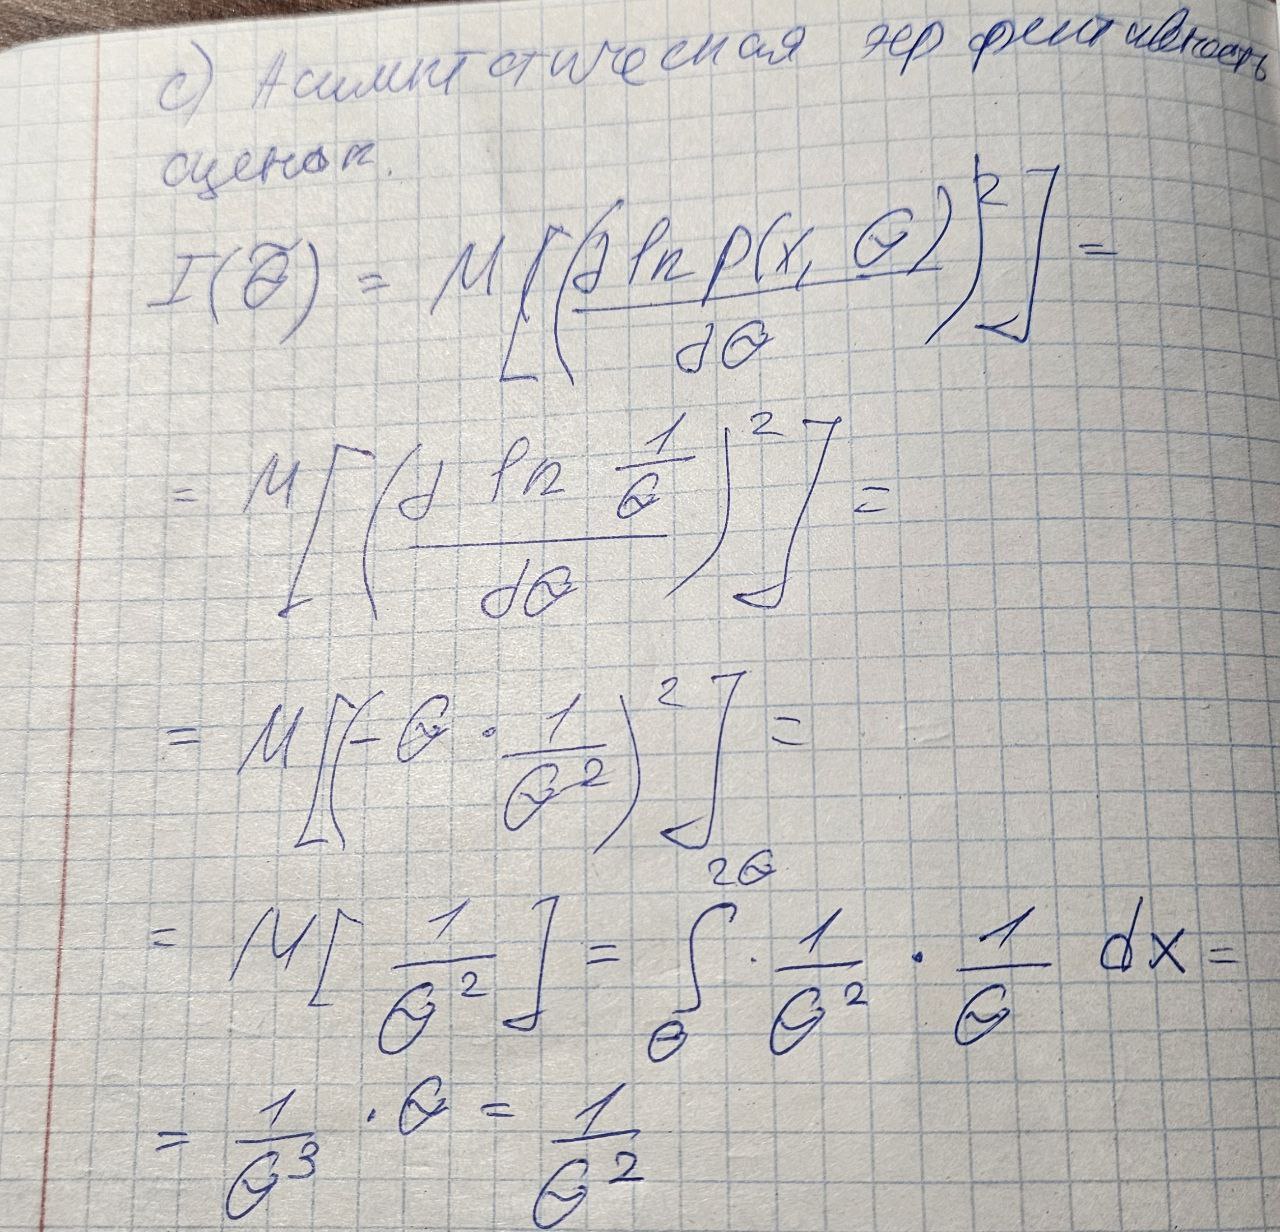 c) Асимптотическая эффективность
оценок.
I(θ̃) = M[(∂ ln p(x, θ) / ∂θ)²] =
= M[(∂ ln 1/θ / ∂θ)²] =
= M[(-θ · 1/θ²)²] =
= M[1/θ²] = ∫_θ^{2θ} · 1/θ² · 1/θ dx =
= 1/θ³ · θ = 1/θ²